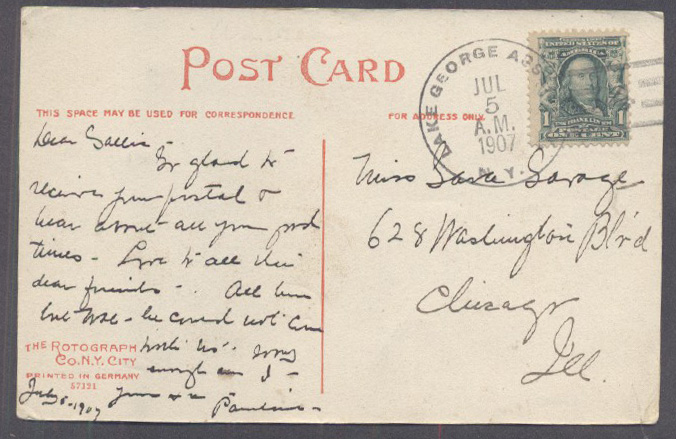 POST CARD
THIS SPACE MAY BE USED FOR CORRESPONDENCE
FOR ADDRESS ONLY.
LAKE GEORGE ASS
N.Y.
JUL
5
A.M.
1907
UNITED STATES OF
AMERICA
1 1
FRANKLIN
POSTAGE
ONE CENT
Dear
So glad to
receive your postal &
hear about all your good
times - Love to all the
dear friends - . All
he could not come
with us - sorry
enough am I -
July 5-1907 Yours
Pauline -
Miss Savage
628 Washington Blvd
Chicago
Ill.
THE ROTOGRAPH
CO. N.Y. CITY
PRINTED IN GERMANY
57121